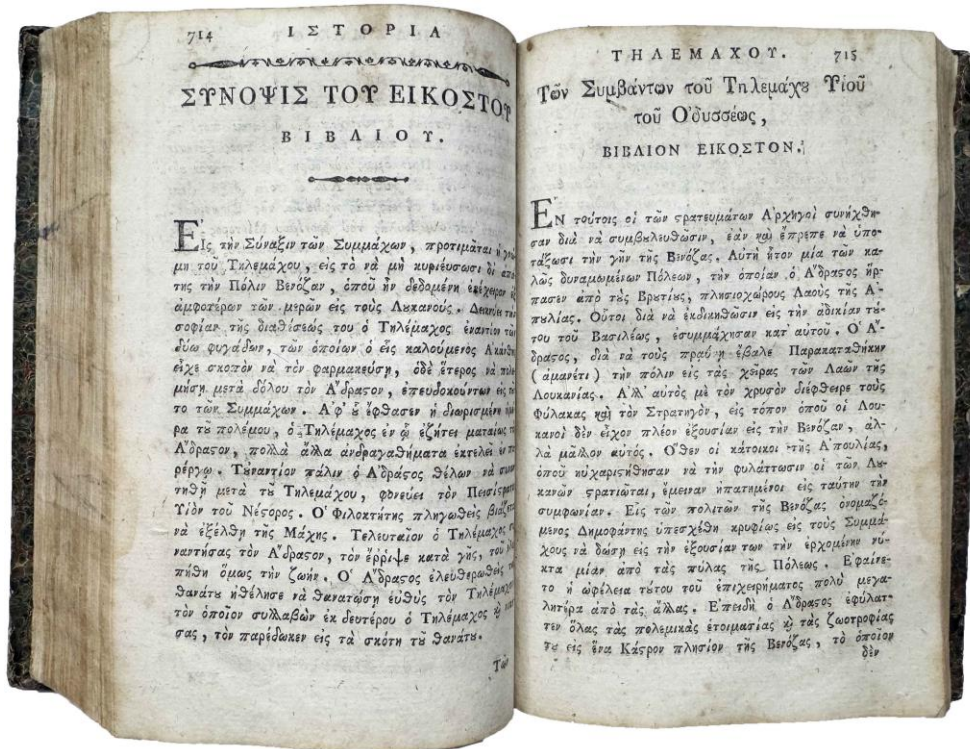 714 ΙΣΤΟΡΙΑ
ΣΥΝΟΨΙΣ ΤΟΥ ΕΙΚΟΣΤΟΥ
ΒΙΒΛΙΟΥ.
Εἰς τὴν Σύναξιν τῶν Συμμάχων, προτιμᾶται ἡ
μη τοῦ Τηλεμάχου, εἰς τὸ νὰ μὴ κυριέυσωσι δι
της τὴν Πόλιν Βενόζαν, ὁποῦ ἦν δεδομένη ἐνέχειρον
ἀμφοτέρων τῶν μερῶν εἰς τοὺς Λυκανούς. Δεικνύει τὴν
σοφίαν τῆς διαθέσεώς του ὁ Τηλέμαχος ἐναντίον τῶν
δύω φυγάδων, τῶν ὁποίων ὁ εἷς καλούμενος
εἶχε σκοπὸν νὰ τὸν φαρμακεύσῃ, ὁδὲ ἕτερος νὰ
μήσῃ μετὰ δόλου τὸν Ἄδραστον, ἐπευδοκούντων εἰς
το τῶν Συμμάχων. Ἀφ' ȣ̓ ἔφθασεν ἡ διωρισμένη
ρα τȣ πολέμου, ὁ Τηλέμαχος ἐν ᾧ ἐζήτει ματαίως
Ἄδραστον, πολλὰ ἄλλα ἀνδραγαθήματα ἐκτελεῖ ἐν
ρέργῳ. Τȣναντίον πάλιν ὁ Ἄδραστος θέλων νὰ
τηθῇ μετὰ τȣ͂ Τηλεμάχου, φονεύει τὸν
Υἱὸν τοῦ Νέστορος. Ὁ Φιλοκτήτης πληγωθεὶς
νὰ ἐξέλθῃ τῆς Μάχης. Τελευταῖον ὁ Τηλέμαχος
ναντήσας τὸν Ἄδραστον, τὸν ἔρριψε κατὰ γῆς, του
πήθη ὅμως τὴν ζωήν. Ὁ Ἄδραστος ἐλευθερωθεὶς
θανάτȣ ἠθέλησε νὰ θανατώσῃ εὐθὺς τὸν Τηλέμαχον
τὸν ὁποῖον συλλαβὼν ἐκ δευτέρου ὁ Τηλέμαχος ϗ
σας, τὸν παρέδωκεν εἰς τὰ σκότη τȣ͂ θανάτȣ.
Τῶν
ΤΗΛΕΜΑΧΟΥ. 715
Τῶν Συμβάντων τοῦ Τηλεμάχȣ Υἱοῦ
τοῦ Ὀδυσσέως,
ΒΙΒΛΙΟΝ ΕΙΚΟΣΤΟΝ.
Ἐν τούτοις οἱ τῶν στρατευμάτων Ἀρχηγοὶ συνήχθη-
σαν διὰ νὰ συμβȣλευθῶσιν, ἐὰν ϗ ἔπρεπε νὰ ὑπο-
τάξωσι τὴν γῆν τῆς Βενόζας. Αὐτὴ ἦτον μία τῶν κα-
λῶς δυναμωμένων Πόλεων, τὴν ὁποίαν ὁ Ἄδραστος ἥρ-
πασεν ἀπὸ τȣ̀ς Βρυτίȣς, πλησιοχώρους Λαοὺς τῆς Α'-
πυλίας. Οὗτοι διὰ νὰ ἐκδικηθῶσιν εἰς τὴν ἀδικίαν τύ-
του τοῦ Βασιλέως, ἐσυμμάχησαν κατ' αὐτοῦ. Ὁ Α῎-
δραστος, διὰ νὰ τοὺς πραΰνῃ ἔβαλε Παρακαταθήκην
(ἀμανέτι) τὴν πόλιν εἰς τὰς χεῖρας τῶν Λαῶν τῆς
Λουκανίας. Ἀλλ' αὐτὸς μὲ τὸν χρυσὸν διέφθειρε τοὺς
Φύλακας ϗ τὸν Στρατηγὸν, εἰς τόπον ὁποῦ οἱ Λου-
κανοὶ δὲν εἶχον πλέον ἐξουσίαν εἰς τὴν Βενόζαν, ἀλ-
λὰ μᾶλλον αὐτός. Ὅθεν οἱ κάτοικοι τῆς Ἀπουλίας,
ὁποῦ ηὐχαριστήθησαν νὰ τὴν φυλάττωσιν οἱ τῶν Λυ-
κανῶν στρατιῶται, ἔμειναν ἠπατημένοι εἰς ταύτην τὴν
συμφωνίαν. Εἷς τῶν πολιτῶν τῆς Βενόζας ὀνομαζό-
μενος Δημοφάντης ὑπεσχέθη κρυφίως εἰς τοὺς Συμμά-
χους νὰ δώσῃ εἰς τὴν ἐξουσίαν των τὴν ἐρχομένην νύ-
κτα μίαν ἀπὸ τὰς πύλας τῆς Πόλεως. Ἐφαίνε-
το ἡ ὠφέλεια τȣ́του τοῦ ἐπιχειρήματος πολὺ μεγα-
λητέρα ἀπὸ τὰς ἄλλας. Ἐπειδὴ ὁ Ἄδραστος ἐφύλατ-
τεν ὅλας τὰς πολεμικὰς ἑτοιμασίας ϗ τὰς ζωοτροφίας
τȣ εἰς ἕνα Κάστρον πλησίον τῆς Βενόζας, τὸ ὁποῖον
δὲν